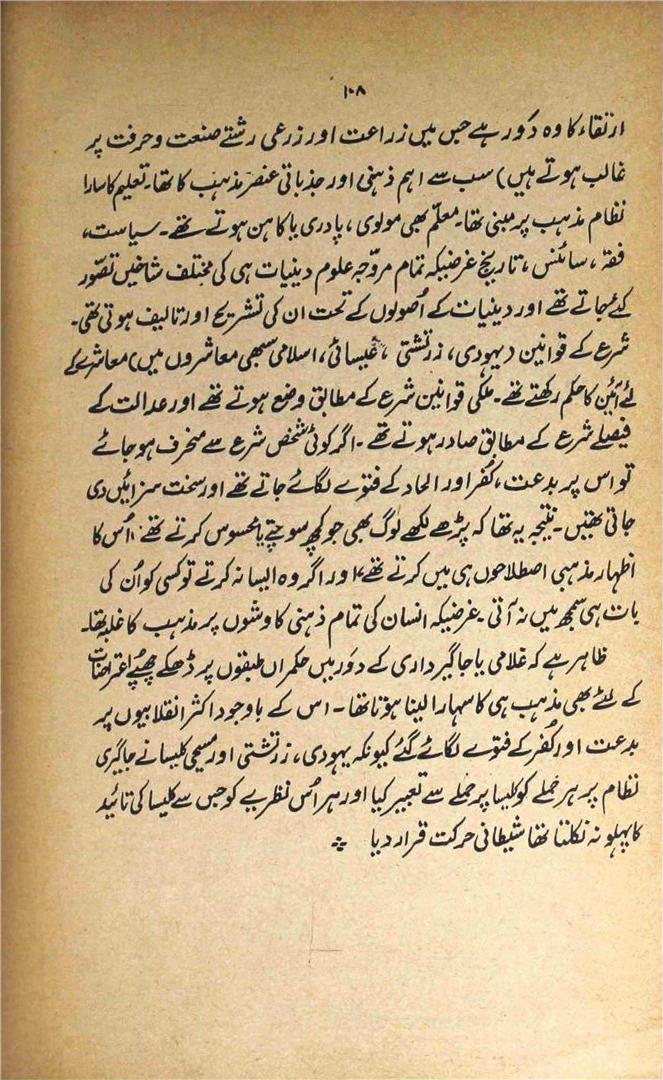 ۱۰۸
ارتقاء کا وہ دَور ہے جس میں زراعت اور زرعی رشتے صنعت و حرفت پر
غالب ہوتے ہیں) سب سے اہم ذہنی اور جذباتی عنصر مذہب کا تھا۔ تعلیم کا سارا
نظام مذہب پر مبنی تھا۔ معلّم بھی مولوی، پادری یا کاہن ہوتے تھے۔ سیاست،
فقہ، سائنس، تاریخ غرضیکہ تمام مروّجہ علوم دینیات ہی کی مختلف شاخیں تصوّر
کیے جاتے تھے اور دینیات کے اُصولوں کے تحت ان کی تشریح اور تالیف ہوتی تھی۔
شرع کے قوانین (یہودی، زرتشتی، عیسائی، اسلامی سبھی معاشروں میں) معاشرے کے
لئے آئین کا حکم رکھتے تھے۔ ملکی قوانین شرع کے مطابق وضع ہوتے تھے اور عدالت کے
فیصلے شرع کے مطابق صادر ہوتے تھے۔ اگر کوئی شخص شرع سے منحرف ہو جائے
تو اس پر بدعت، کُفر اور الحاد کے فتوے لگائے جاتے تھے اور سخت سزائیں دی
جاتی تھیں۔ نتیجہ یہ تھا کہ پڑھے لکھے لوگ بھی جو کچھ سوچتے یا محسوس کرتے تھے، اُس کا
اظہار مذہبی اصطلاحوں ہی میں کرتے تھے، اور اگر وہ ایسا نہ کرتے تو کسی کو اُن کی
بات ہی سمجھ میں نہ آتی۔ غرضیکہ انسان کی تمام ذہنی کاوشوں پر مذہب کا غلبہ تھا۔
ظاہر ہے کہ غلامی یا جاگیرداری کے دَور میں حکمراں طبقوں پر ڈھکے چھپے اعتراضات
کے لئے بھی مذہب ہی کا سہارا لینا ہوتا تھا۔ اس کے باوجود اکثر انقلابیوں پر
بدعت اور کُفر کے فتوے لگائے گئے کیونکہ یہودی، زرتشتی اور مسیحی کلیسا نے جاگیری
نظام پر ہر حملے کو کلیسا پر حملے سے تعبیر کیا اور ہر اُس نظریے کو جس سے کلیسا کی تائید
کا پہلو نہ نکلتا تھا شیطانی حرکت قرار دیا